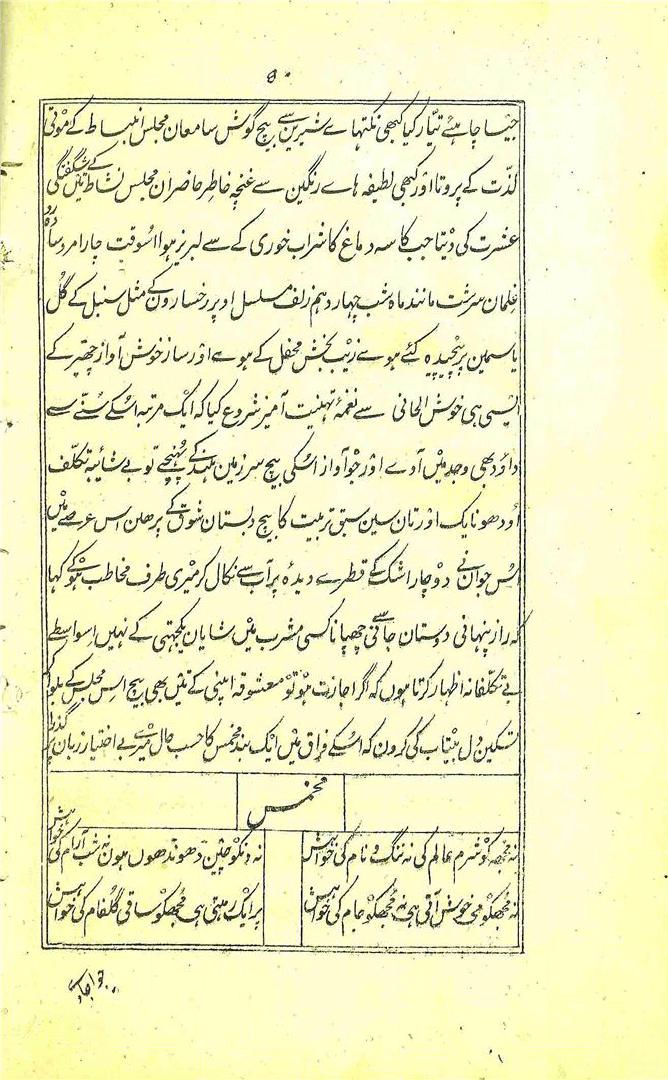 ۵۰
جیسا چاہئے تیار کیا کبھی نکتہاے شیرین سے بیچ گوش سامعان مجلس انبساط کے موتی
لذّت کے پروتا اور کبھی لطیفہ ہاے رنگین سے غنچہ خاطر حاضران مجلس نشاط کے تئین شگفتگی
عشرت کی دیتا جب کاسہ دماغ کا شراب خوری کے سے لبریز ہوا اسوقت چار امرد سادہ رو
غلمان سرشت مانند ماہ شب چہاردہم زلف مسلسل اوپر رخسارون کے مثل سنبل کے گل
یاسمین پر پیچیدہ کئے ہوے زیب بخش محفل کے ہوے اور ساز خوش آواز چھیڑ کے
ایسی ہی خوش الحانی سے نغمۂ تہنیت آمیز شروع کیا کہ ایک مرتبہ اسکے سننے سے
داوٗد بھی وجد میں آوے اور جو آواز اسکی بیچ سرزمین ہند کے پہنچے تو بے شائبہ تکلّف
اودھو نایک اور تان سین سبق تربیت کا بیچ دبستان شوق کے پڑھلن اس عرصے میں
اس جوان نے دو چار اشک کے قطرے دیدہ پر آب سے نکال کر میری طرف مخاطب ہو کے کہا
کہ راز پنہانی دوستان جانی سے چھپانا کسی مشرب میں شایان یکجہتی کے نہیں اسواسطے
بے تکلّفانہ اظہار کرتا ہوں کہ اگر اجازت ہو تو معشوقہ اپنی کے تئیں بھی بیچ اس مجلس کے بلوا کر
تسکین دل بیتاب کی کرون کہ اسکے فراق میں ایک بند مخمس کا حسب حال میرے بے اختیار زبان پر گذرا
مخمس
نہ مجھکو شرم عالم کی نہ ننگ و نام کی خواہش نہ دنکو چین ڈھونڈھوں ہون نہ شب آرام کی خواہش
نہ مجھکو می خوش آتی ہی نہ مجھکو جام کی خواہش پر ایک رہتی ہی مجھکو ساقی گلفام کی خواہش